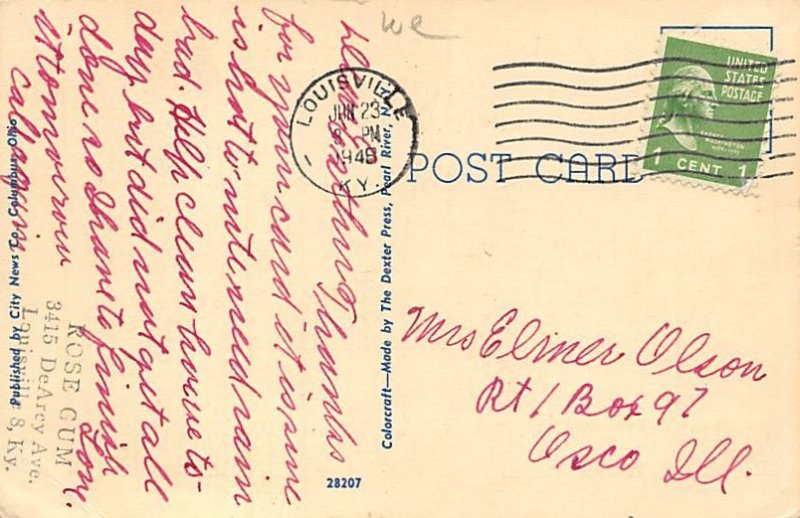 Thanks
for your card it is
is hot to nite need rain
bad. Help clean house to-
day but did not get all
done so I have to finish
it tomorrow Love.
ROSE GUM
3415 DeArcy Ave.
Louisville 8, Ky.
Published by City News Co., Columbus, Ohio
Colorcraft—Made by The Dexter Press, Pearl River, N.Y.
28207
we
LOUISVILLE
JUN 23
PM
1948
KY.
UNITED
STATES
POSTAGE
WASHINGTON
1 CENT 1
POST CARD
Mrs Elmer Olson
Rt 1 Box 97
Osco Ill.